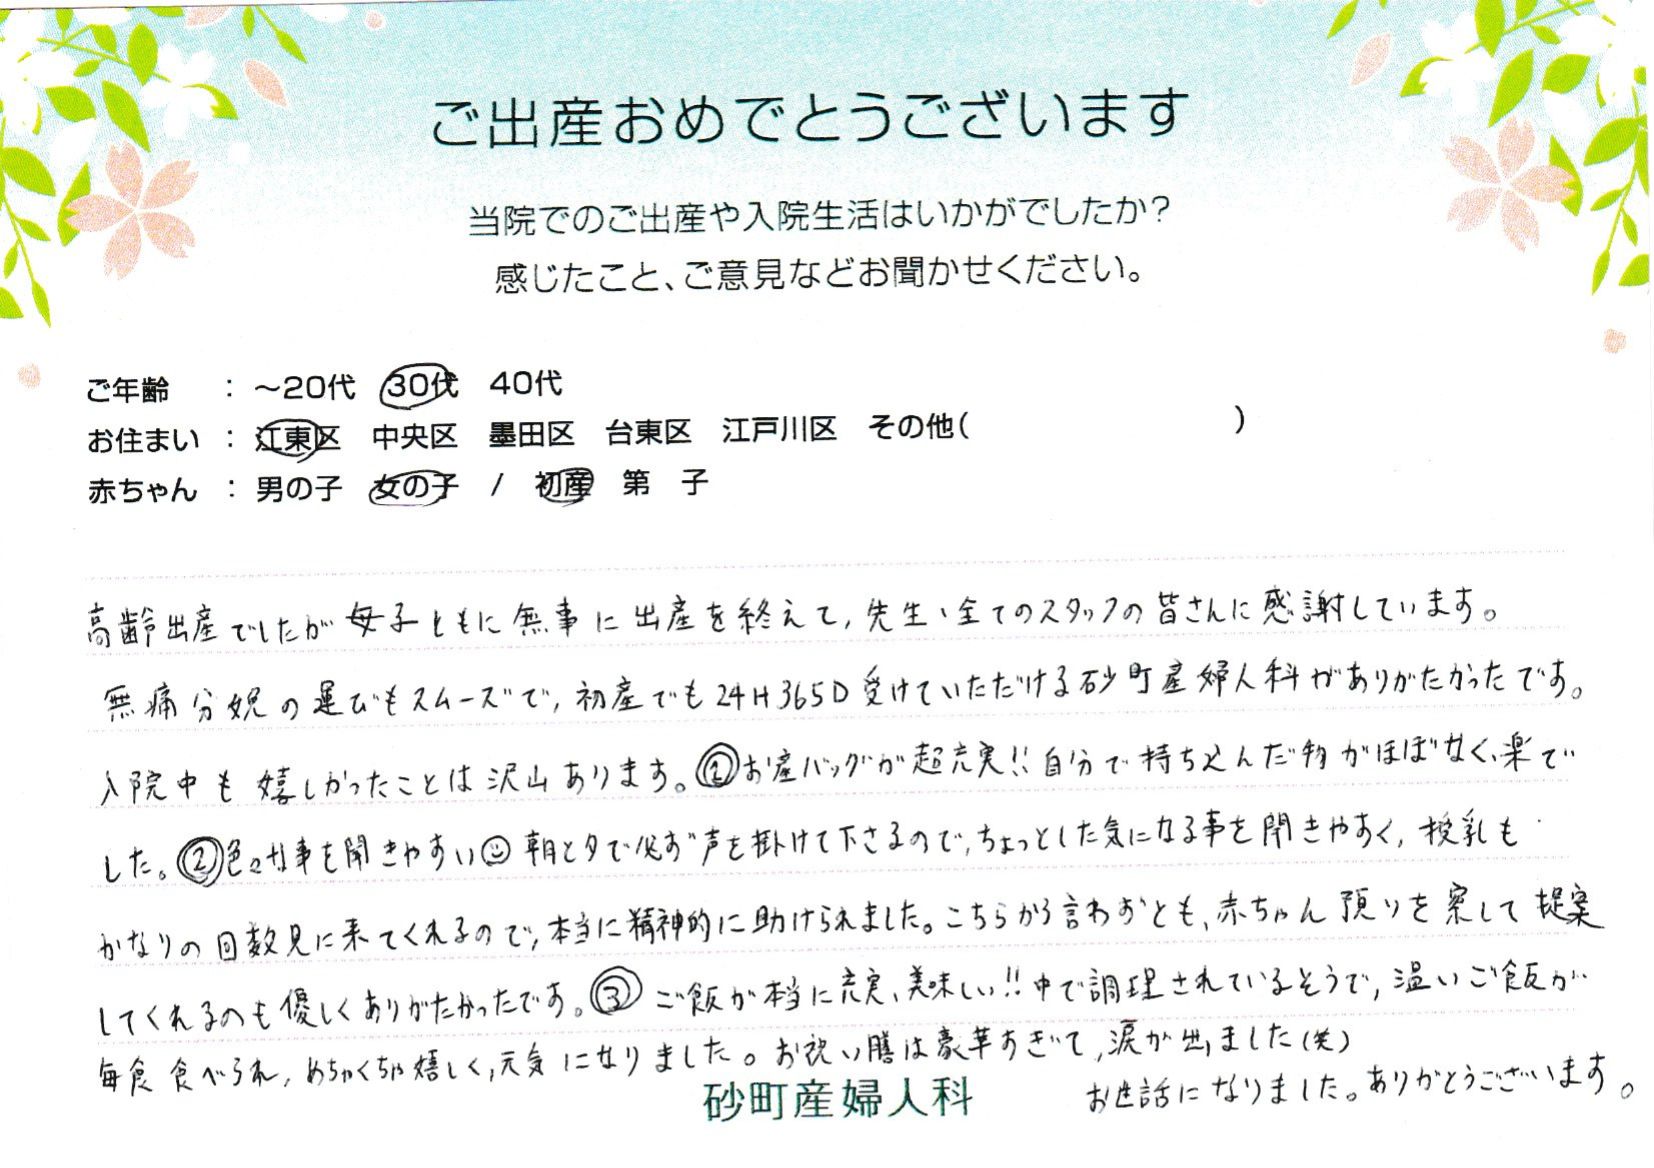 ご出産おめでとうございます
当院でのご出産や入院生活はいかがでしたか?
感じたこと、ご意見などお聞かせください。
ご年齢 : ～20代 30代 40代
お住まい : 江東区 中央区 墨田区 台東区 江戸川区 その他( )
赤ちゃん : 男の子 女の子 / 初産 第 子
高齢出産でしたが母子ともに無事に出産を終えて、先生、全てのスタッフの皆さんに感謝しています。
無痛分娩の運びもスムーズで、初産でも24H365D受けていただける砂町産婦人科がありがたかったです。
入院中も嬉しかったことは沢山あります。①お産バッグが超充実!!自分で持ち込んだ物がほぼなく、楽で
した。②色々な事を聞きやすい☺朝と夕で必ず声を掛けて下さるので、ちょっとした気になる事を聞きやすく、授乳も
かなりの回数見に来てくれるので、本当に精神的に助けられました。こちらから言わずとも、赤ちゃん預りを察して提案
してくれるのも優しくありがたかったです。③ご飯が本当に充実、美味しい!!中で調理されているそうで、温いご飯が
毎食食べられ、めちゃくちゃ嬉しく、元気になりました。お祝い膳は豪華すぎて、涙が出ました(笑)
お世話になりました。ありがとうございます。
砂町産婦人科